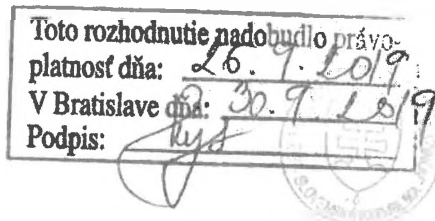 Toto rozhodnutie nadobudlo právo-
platnosť dňa: 26. 9. 2019
V Bratislave dňa: 30. 9. 2019
Podpis: